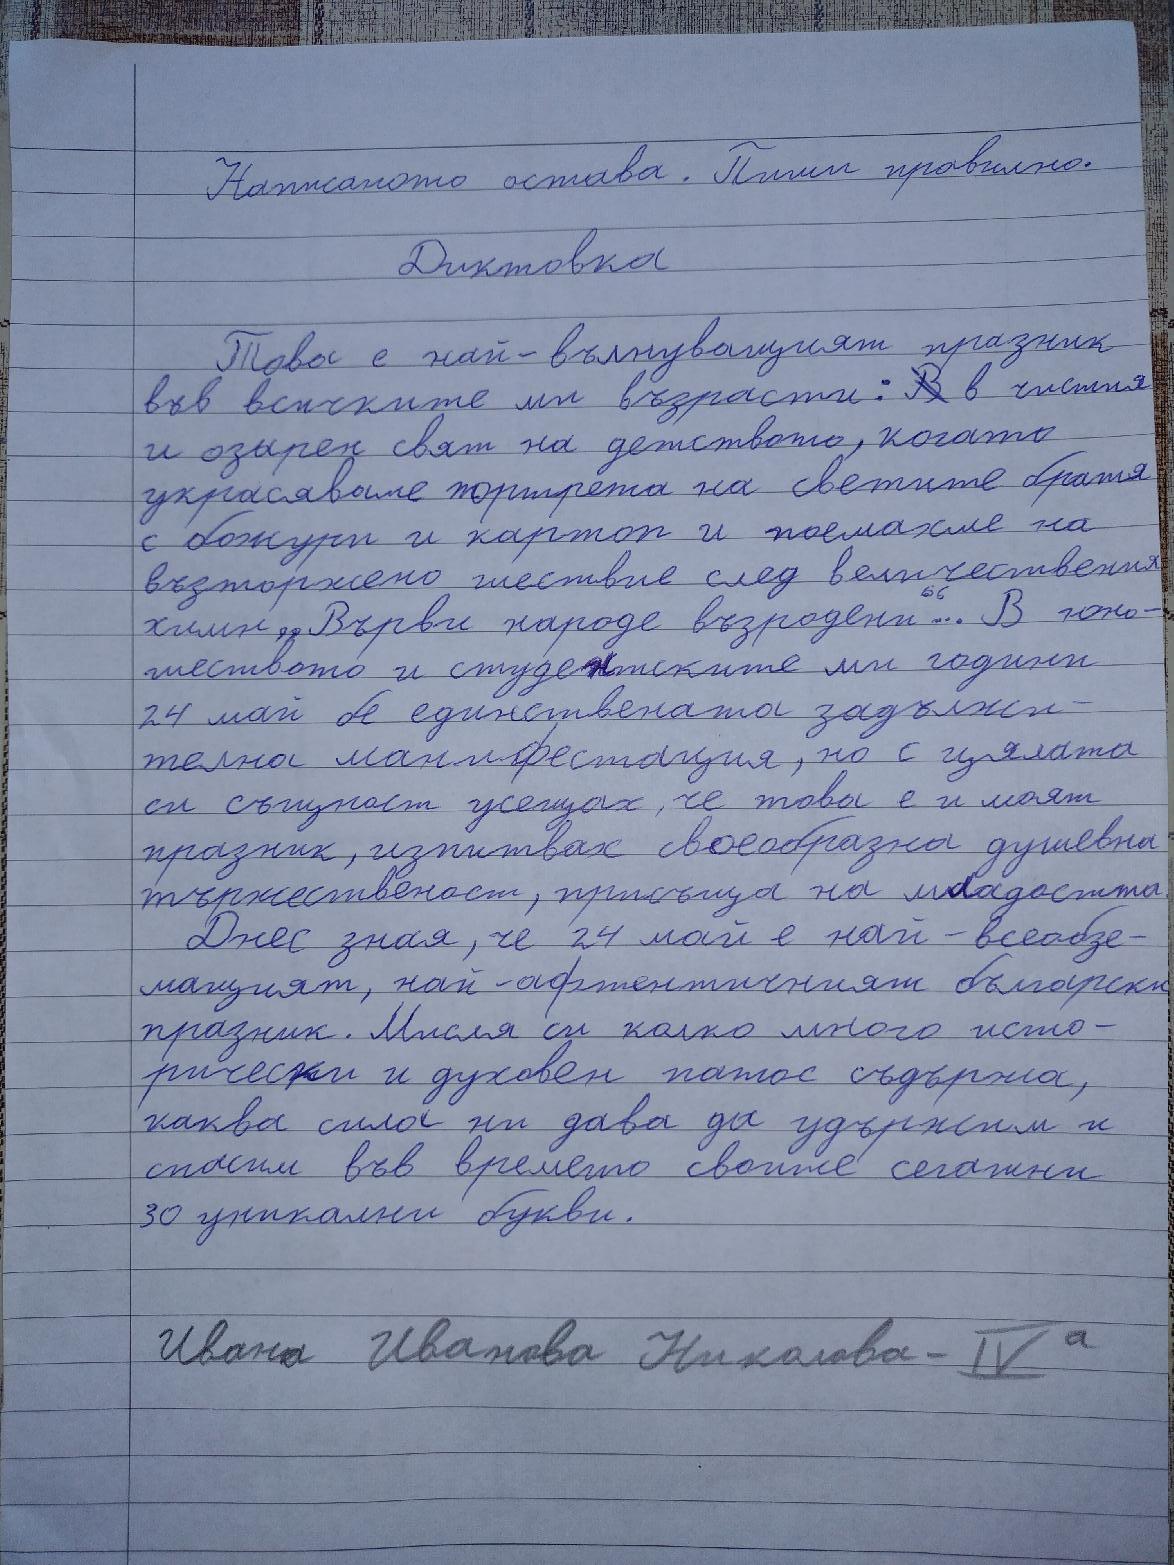 Написаното остава. Пиши правилно.
Диктовка
Това е най-вълнуващият празник
във всичките ми възрасти: в чистия
и озарен свят на детството, когато
украсявахме портрета на светите братя
с божури и картон и поемахме на
възторжено шествие след величествения
химн „Върви народе възродени“... В юно-
шеството и студентските ми години
24 май бе единствената задължи-
телна манифестация, но с цялата
си същност усещах, че това е и моят
празник, изпитвах своеобразна душевна
тържественост, присъща на младостта.
Днес зная, че 24 май е най-всеобзе-
мащият, най-афтентичният български
празник. Мисля си колко много исто-
рически и духовен патос съдържа,
каква сила ни дава да удържим и
спасим във времето своите сегашни
30 уникални букви.
Ивана Иванова Николова - IV а